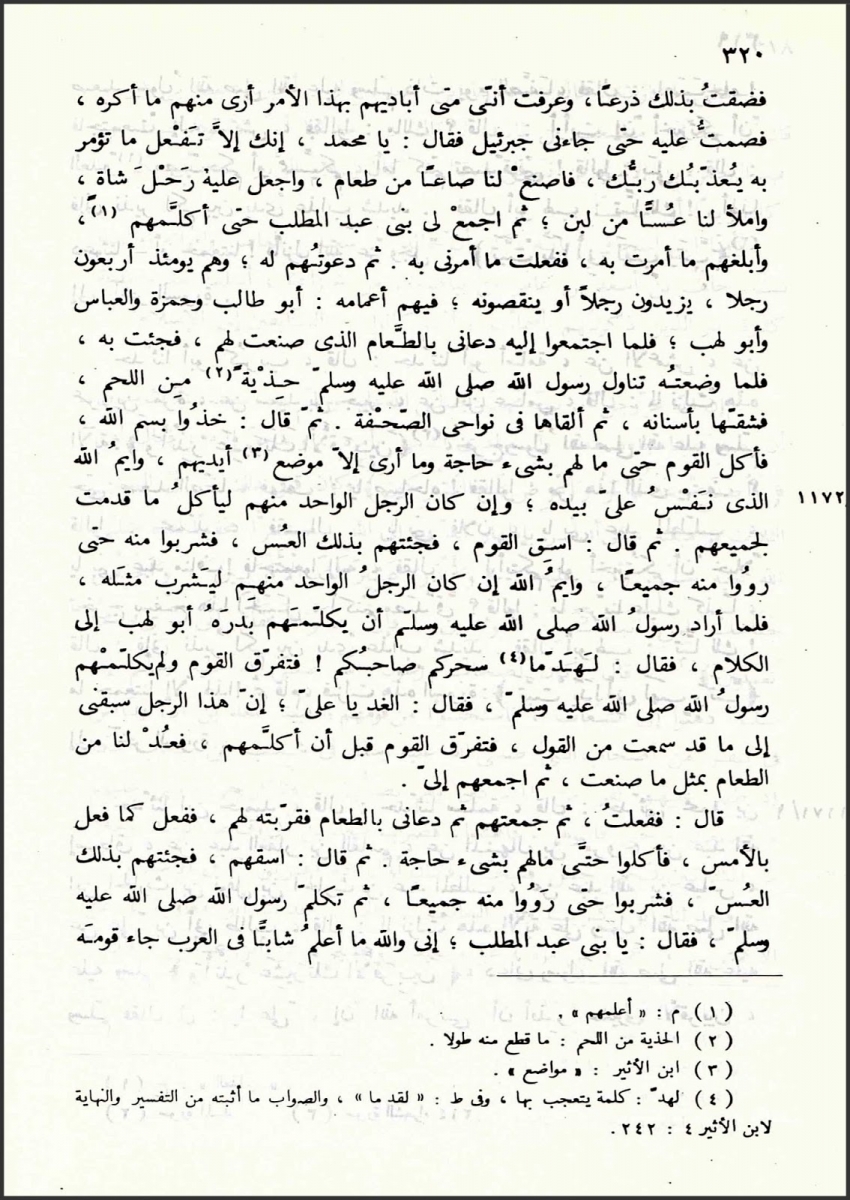 ٣٢٠
فضقتُ بذلك ذرعًا، وعرفت أنّى متى أباديهم بهذا الأمر أرى منهم ما أكره ،
فصمتُّ عليه حتّى جاءنى جبرئيل فقال : يا محمد ، إنك إلاَّ تَفْعل ما تؤمر
به يُعذّبْك ربُّك ، فاصنعْ لنا صاعًا من طعام ، واجعل عليه رَحْلَ شاة ،
واملأ لنا عُسًّا من لبن ؛ ثم اجمعْ لى بنى عبد المطلب حتّى أكلَّمهم (١) ،
وأبلغهم ما أمرت به ، ففعلت ما أمرنى به . ثم دعوتُهم له ؛ وهم يومئذ أربعون
رجلا ، يزيدون رجلاً أو ينقصونه ؛ فيهم أعمامه : أبو طالب وحمزة والعباس
وأبو لهب ؛ فلما اجتمعوا إليه دعانى بالطَّعام الذى صنعت لهم ، فجئت به ،
فلما وضعتُه تناول رسول الله صلى الله عليه وسلمّ حِذْيَةً (٢) من اللحم ،
فشقَّها بأسنانه ، ثم ألقاها فى نواحى الصَّحْفة . ثمّ قال : خذُوا بسم الله ،
فأكل القوم حتّى ما لهم بشىء حاجة وما أرى إلاّ موضع (٣) أيديهم ، وايمُ الله
الذى نَفْسُ علىّ بيده ؛ وإن كان الرجل الواحد منهم ليأكلُ ما قدمت
١١٧٢
لجميعهم . ثم قال : اسقِ القوم ، فجئتهم بذلك العُسّ ، فشربوا منه حتى
روُوا منه جميعًا ، وايمُ الله إن كان الرجلُ الواحد منهم ليشرب مثلَه ،
فلما أراد رسولُ الله صلى الله عليه وسلّم أن يكلّمهم بدَرهُ أبو لهب إلى
الكلام ، فقال : لَهَدّما (٤) سحركم صاحبُكم ! فتفرّق القوم ولم يكلّمْهم
رسولُ الله صلى الله عليه وسلمّ ، فقال : الغد يا علىّ ؛ إنّ هذا الرجل سبقنى
إلى ما قد سمعت من القول ، فتفرّق القوم قبل أن أكلَّمهم ، فعُدْ لنا من
الطعام بمثل ما صنعت ، ثم اجمعهم إلىّ .
قال : ففعلتُ ، ثم جمعتهم ثم دعانى بالطعام فقرّبته لهم ، ففعل كما فعل
بالأمس ، فأكلوا حتَّى مالهم بشىء حاجة . ثم قال : اسقهم ، فجئتهم بذلك
العُسّ ، فشربوا حتى رَوُوا منه جميعًا ، ثم تكلمّ رسول الله صلى الله عليه
وسلمّ ، فقال : يا بنى عبد المطلب ؛ إنى والله ما أعلمُ شابًّا فى العرب جاء قومَه
(١) م : « أعلمهم » .
(٢) الحذية من اللحم : ما قطع منه طولا .
(٣) ابن الأثير : « مواضع » .
(٤) لهدّ : كلمة يتعجب بها ، وفى ط : « لقد ما » ، والصواب ما أثبته من التفسير والنهاية
لابن الأثير ٤ : ٢٤٢ .